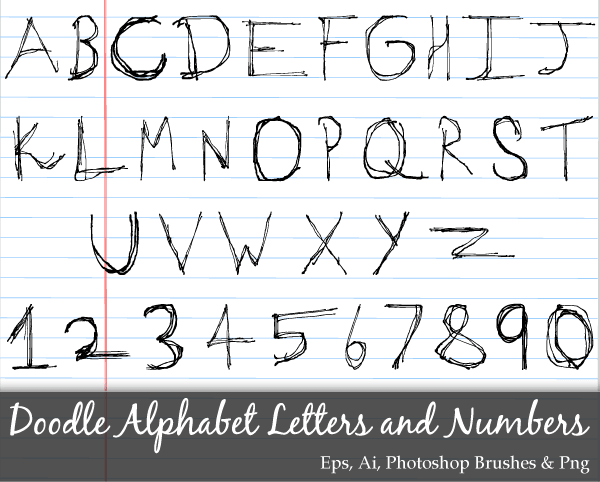 A B C D E F G H I J
K L M N O P Q R S T
U V W X Y Z
1 2 3 4 5 6 7 8 9 0
Doodle Alphabet Letters and Numbers
Eps, Ai, Photoshop Brushes & Png